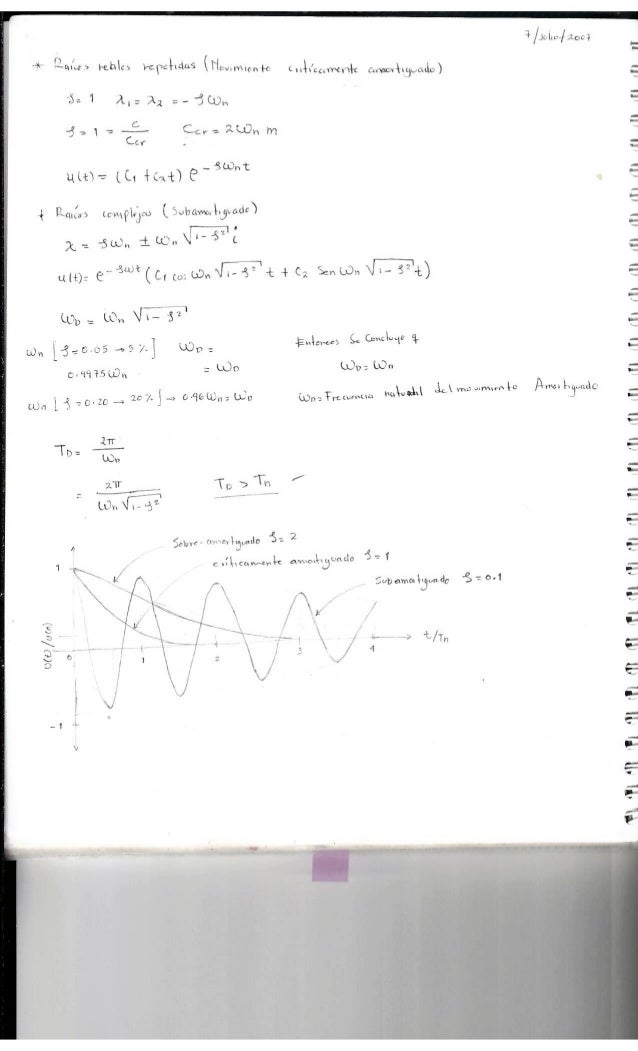 7/Julio/2007
* Raíces reales repetidas (Movimiento críticamente amortiguado)
ζ = 1 λ₁ = λ₂ = - ζωn
ζ = 1 = c/Ccr Ccr = 2ωn m
u(t) = (C₁ + C₂t) e^(-ζωnt)
+ Raíces complejas (Subamortiguado)
λ = ζωn ± ωn √(1-ζ²) i
u(t) = e^(-ζωt) (C₁ cos ωn √(1-ζ²) t + C₂ Sen ωn √(1-ζ²) t)
ωD = ωn √(1-ζ²)
ωn [ζ = 0.05 → 5 %] ωD = Entonces Se Concluye q
0.9975ωn = ωD ωD = ωn
ωn [ζ = 0.20 → 20 %] → 0.96ωn = ωD ωD = Frecuencia natural del movimiento Amortiguado
TD = 2π/ωD
= 2π/(ωn √(1-ζ²)) TD > Tn
Sobre-amortiguado ζ = 2
críticamente amortiguado ζ = 1
Subamortiguado ζ = 0.1
1
U(t)/U(0)
0 1 2 3 4 t/Tn
-1